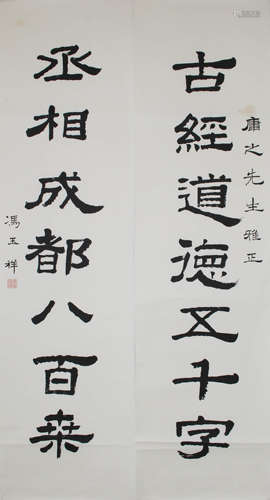 庸之先生雅正
古經道德五千字
丞相成都八百桑
馮玉祥